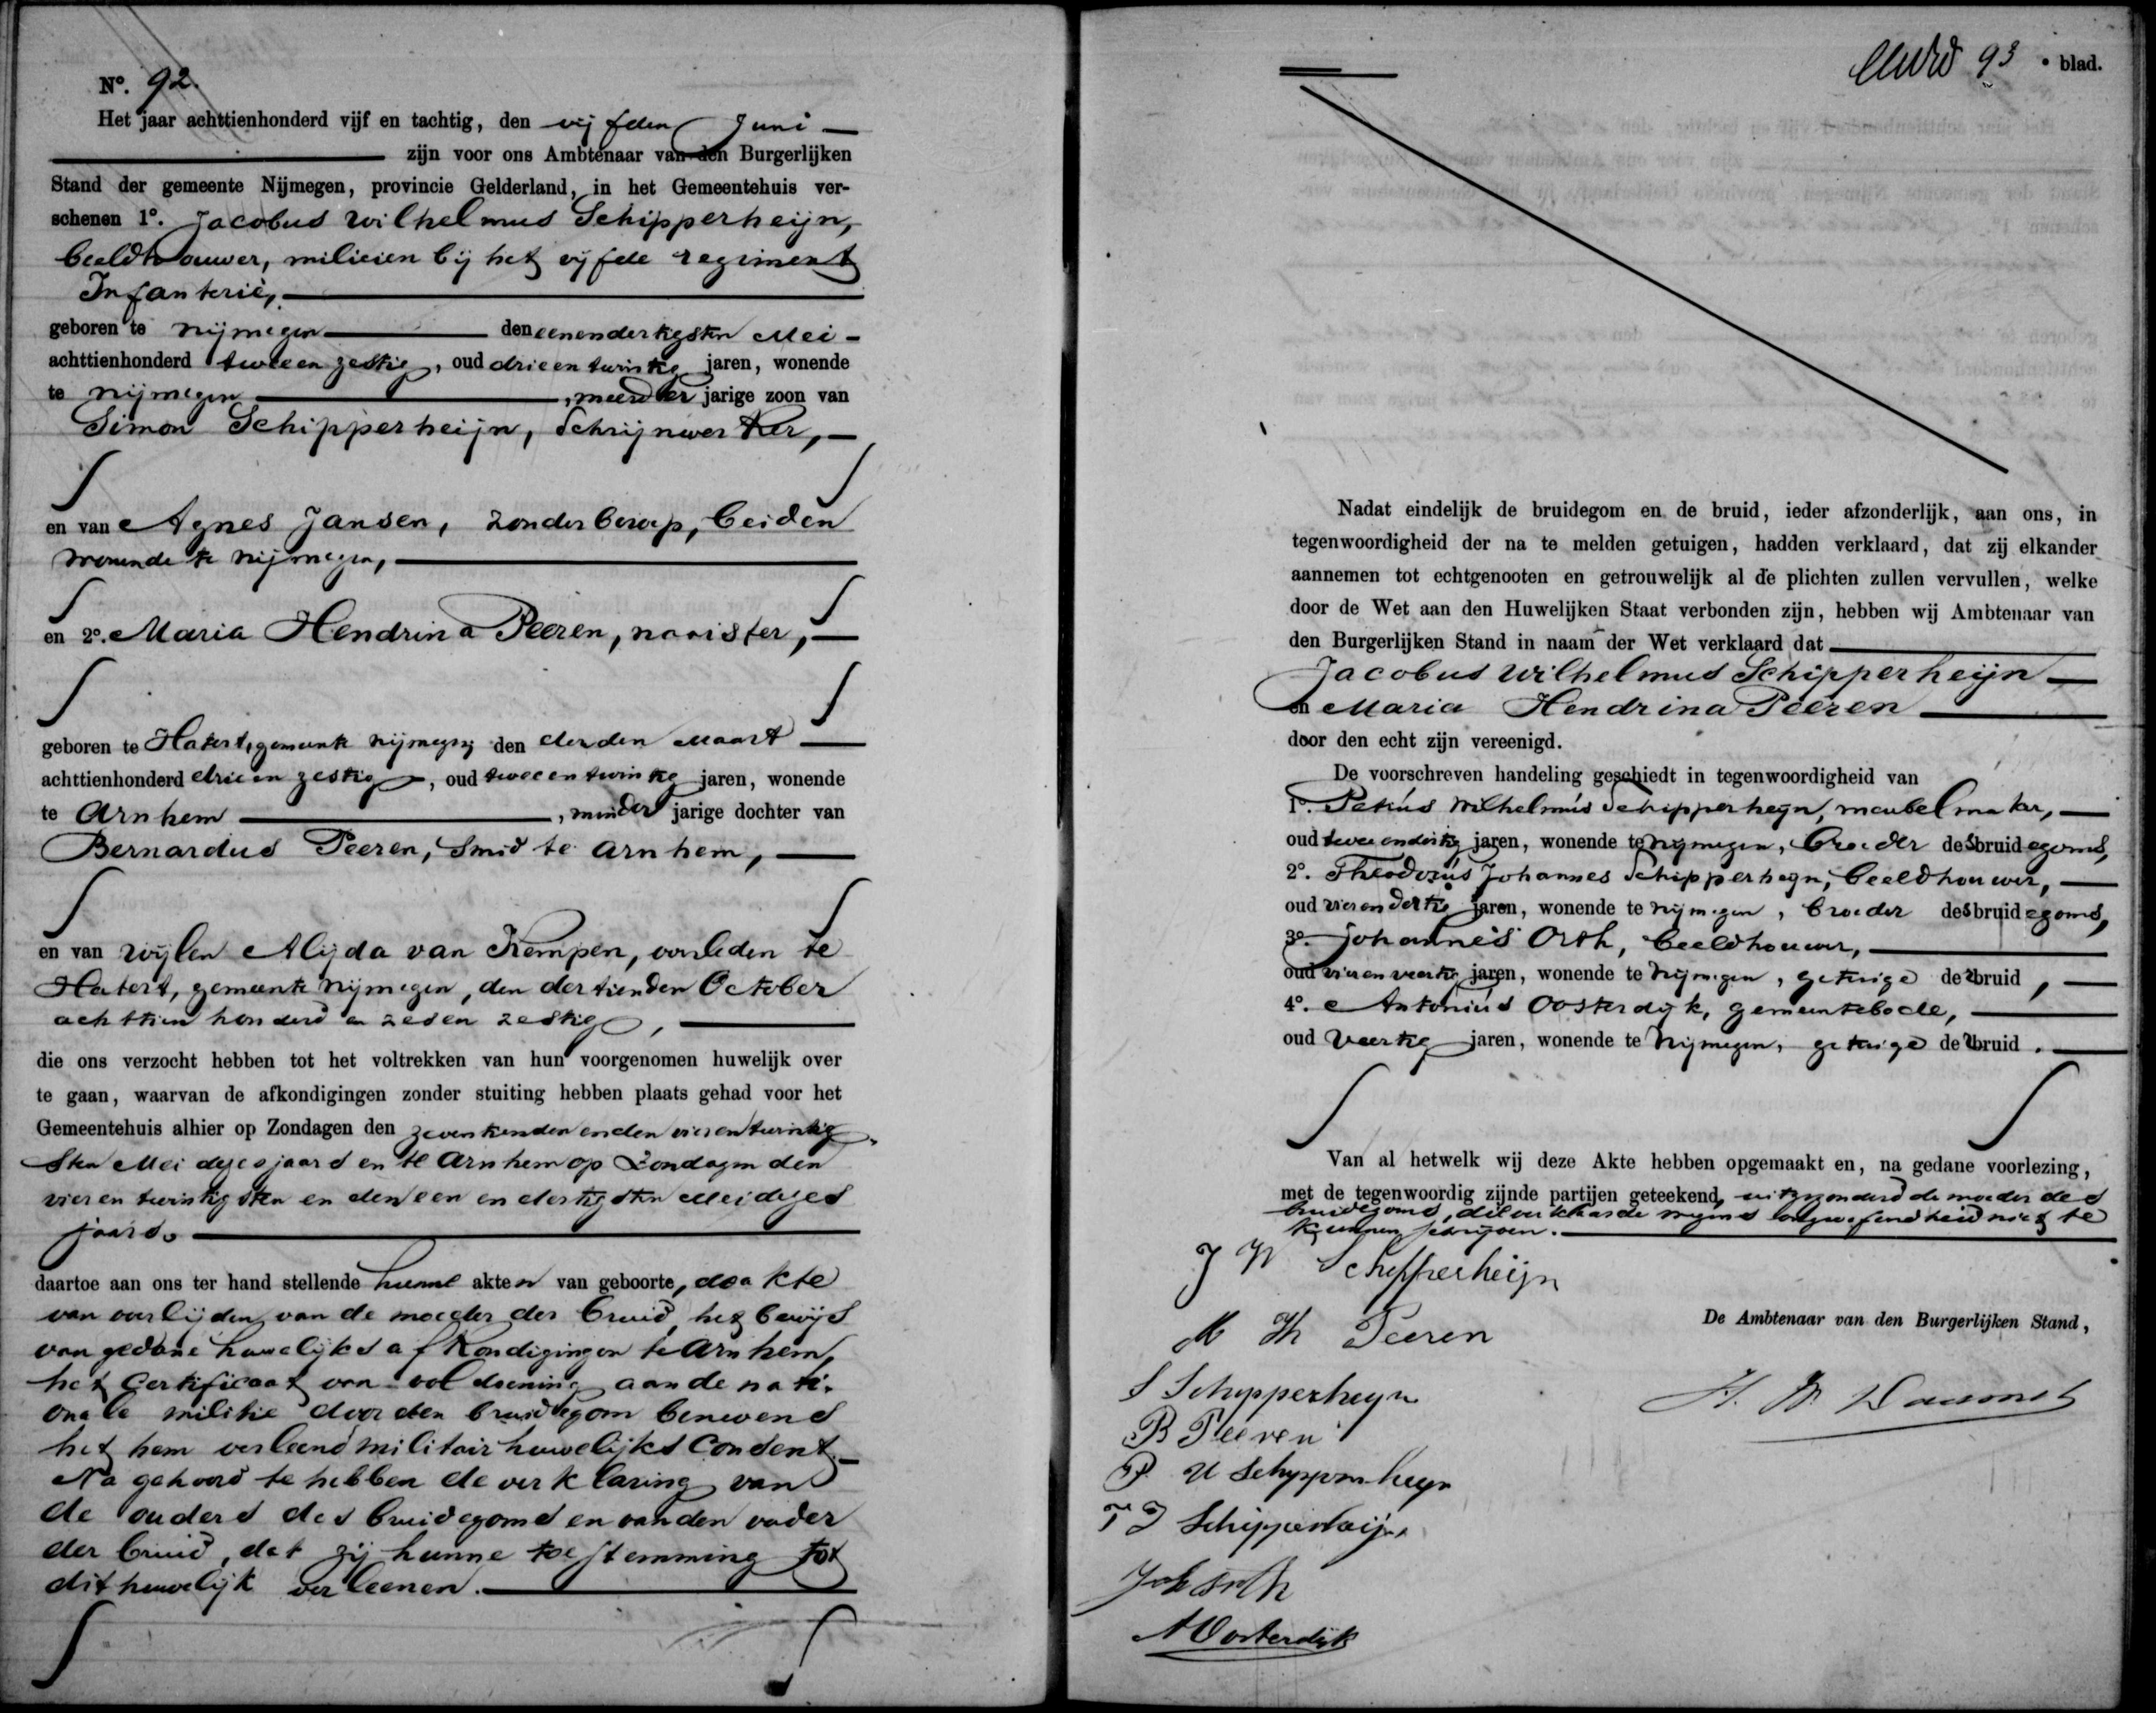 Nº. 92.
Het jaar achttienhonderd vijf en tachtig, den vijfden Juni
zijn voor ons Ambtenaar van den Burgerlijken
Stand der gemeente Nijmegen, provincie Gelderland, in het Gemeentehuis ver-
schenen 1º. Jacobus Wilhelmus Schipperheijn,
beeldhouwer, milicien bij het vijfde regiment
Infanterie,
geboren te Nijmegen den eenendertigsten Mei
achttienhonderd tweeenzestig, oud drieentwintig jaren, wonende
te Nijmegen, meerderjarige zoon van
Simon Schipperheijn, Schrijnwerker,
en van Agnes Jansen, zonder beroep, beiden
wonende te Nijmegen,
en 2º. Maria Hendrina Peeren, naaister,
geboren te Hatert, gemeente Nijmegen den derden Maart
achttienhonderd drieenzestig, oud tweeentwintig jaren, wonende
te Arnhem, minderjarige dochter van
Bernardus Peeren, Smid te Arnhem,
en van wijlen Alijda van Kempen, overleden te
Hatert, gemeente Nijmegen, den dertienden October
achttienhonderd en zeven zestig,
die ons verzocht hebben tot het voltrekken van hun voorgenomen huwelijk over
te gaan, waarvan de afkondigingen zonder stuiting hebben plaats gehad voor het
Gemeentehuis alhier op Zondagen den zeventienden en den vierentwintig
sten Mei dezes jaars en te Arnhem op Zondagen den
vierentwintigsten en den eenendertigsten Mei dezes
jaars.
daartoe aan ons ter hand stellende hunne akten van geboorte, de akte
van overlijden van de moeder der bruid, het bewijs
van gedane huwelijks afkondigingen te Arnhem,
het Certificaat van voldoening aan de nati-
onale militie door den bruidegom benevens
het hem verleend militair huwelijks Consent.
Na gehoord te hebben de verklaring van
de ouders des bruidegoms en van den vader
der bruid, dat zij hunne toestemming tot
dit huwelijk verleenen.
93 blad.
Nadat eindelijk de bruidegom en de bruid, ieder afzonderlijk, aan ons, in
tegenwoordigheid der na te melden getuigen, hadden verklaard, dat zij elkander
aannemen tot echtgenooten en getrouwelijk al de plichten zullen vervullen, welke
door de Wet aan den Huwelijken Staat verbonden zijn, hebben wij Ambtenaar van
den Burgerlijken Stand in naam der Wet verklaard dat
Jacobus Wilhelmus Schipperheijn
en Maria Hendrina Peeren
door den echt zijn vereenigd.
De voorschreven handeling geschiedt in tegenwoordigheid van
1º. Petrus Wilhelmus Schipperheijn, meubelmaker,
oud tweeendertig jaren, wonende te Nijmegen, broeder des bruidegoms,
2º. Theodorus Johannes Schipperheijn, beeldhouwer,
oud vierendertig jaren, wonende te Nijmegen, broeder des bruidegoms,
3º. Johannes Orth, beeldhouwer,
oud vierenveertig jaren, wonende te Nijmegen, getuige der bruid,
4º. Antonius Oosterdijk, gemeentebode,
oud veertig jaren, wonende te Nijmegen, getuige der bruid.
Van al hetwelk wij deze Akte hebben opgemaakt en, na gedane voorlezing,
met de tegenwoordig zijnde partijen geteekend, uitgezonderd de moeder des
bruidegoms, die verklaarde wegens ongeoefendheid niet te
kunnen schrijven.
J W Schipperheijn
M H Peeren
De Ambtenaar van den Burgerlijken Stand,
S Schipperheijn
B Peeren
P W Schipperheijn
T J Schipperheijn
Joh Orth
A Oosterdijk